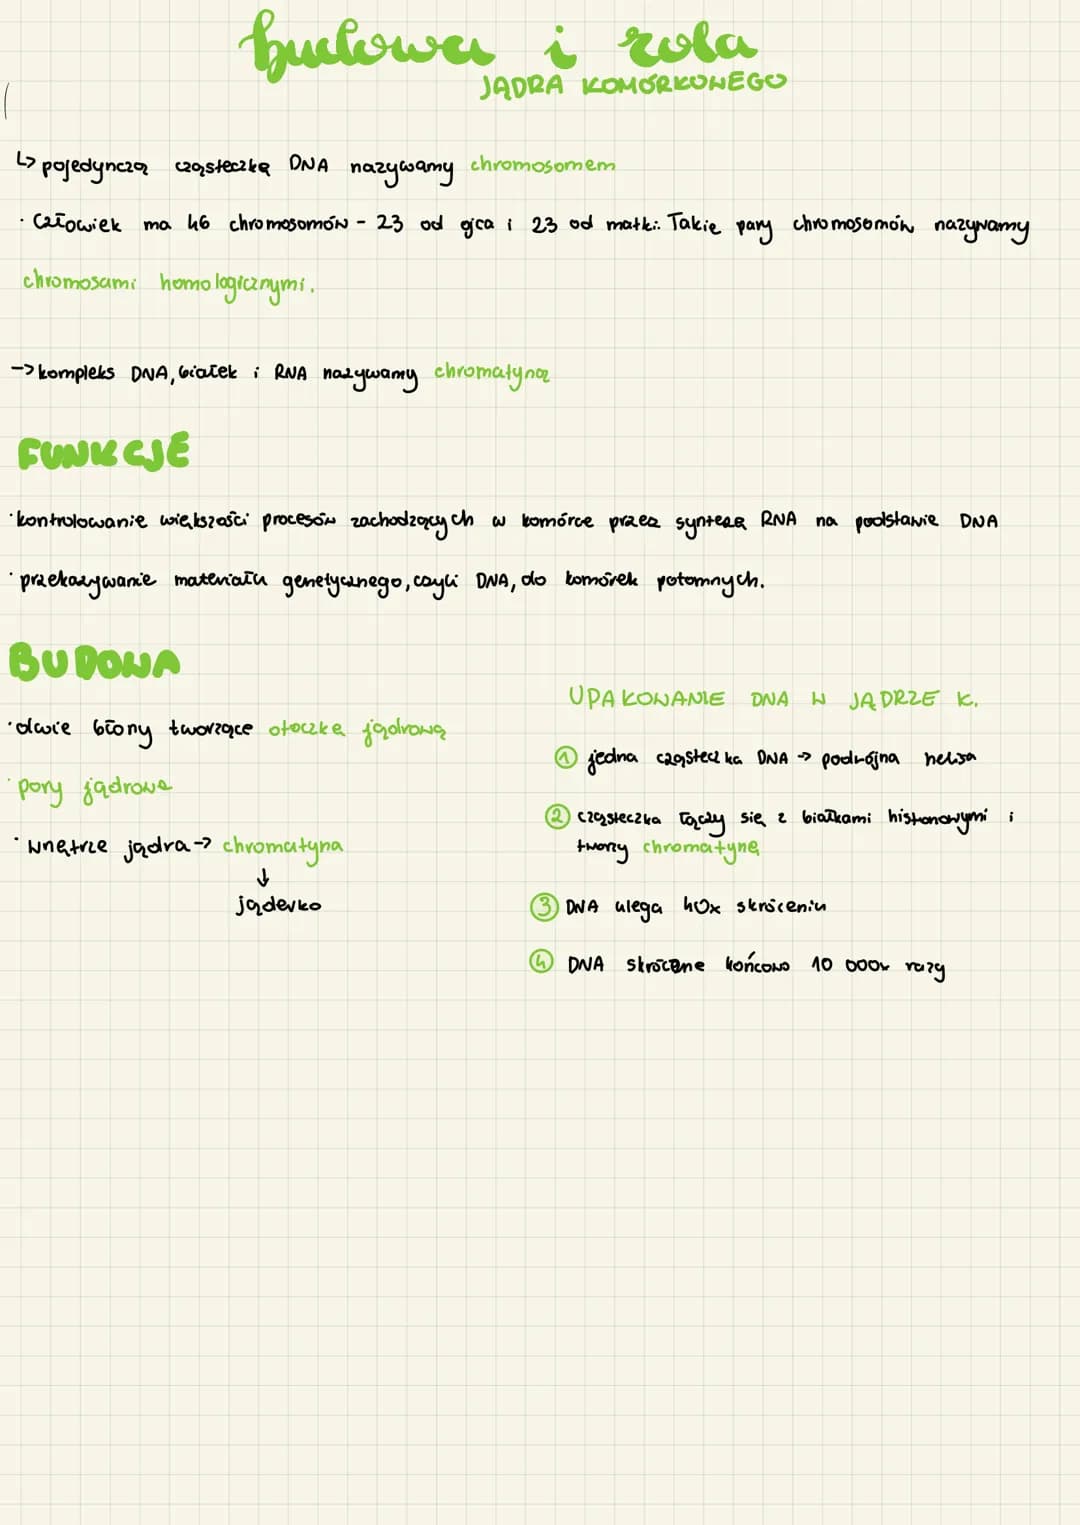 budowa i rola
JĄDRA KOMÓRKOWEGO
↳ pojedynczą cząsteczkę DNA nazywamy chromosomem
· Człowiek ma 46 chromosomów - 23 od ojca i 23 od matki. Takie pary chromosomów nazywamy
chromosami homologicznymi.
-> kompleks DNA, białek i RNA nazywamy chromatyną
FUNKCJE
· kontrolowanie większości procesów zachodzących w komórce przez syntezę RNA na podstawie DNA
· przekazywanie materiału genetycznego, czyli DNA, do komórek potomnych.
BUDOWA
· dwie błony tworzące otoczkę jądrową
· pory jądrowe
· wnętrze jądra -> chromatyna
↓
jąderko
UPAKOWANIE DNA W JĄDRZE K.
① jedna cząsteczka DNA -> podwójna helisa
② cząsteczka łączy się z białkami histonowymi i
tworzy chromatynę
③ DNA ulega 40x skróceniu
④ DNA skrócone końcowo 10 000x razy